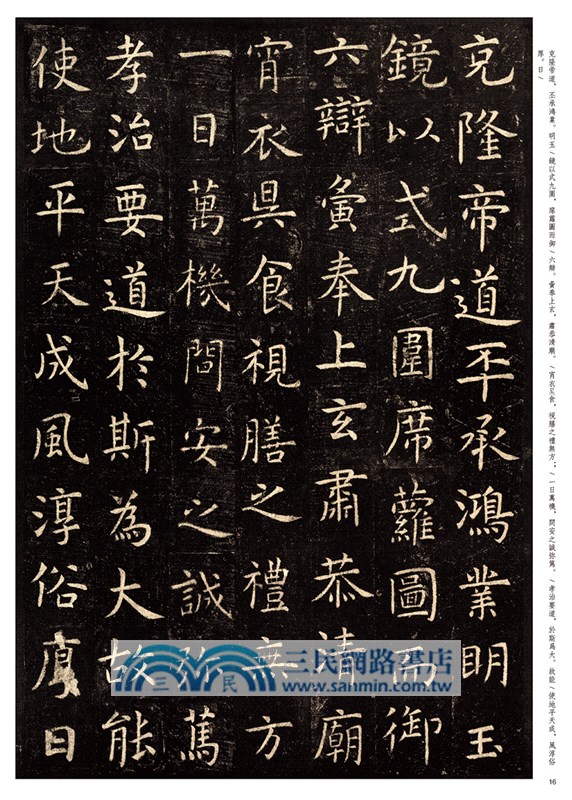 克隆帝道，丕承鴻業。明玉/鏡以式九圍，席蘿圖而御/六辯。寅奉上玄，肅恭清廟。/宵衣昃食，視膳之禮無方；/一日萬機，問安之誠弥篤。/孝治要道，於斯爲大。故能/使地平天成，風淳俗
厚。日/
克隆帝道丕承鴻業明玉
鏡以式九圍席蘿圖而御
六辯寅奉上玄肅恭清廟
宵衣昃食視膳之禮無方
一日萬機問安之誠弥篤
孝治要道於斯為大故能
使地平天成風淳俗厚日
三民
三民網路書店
www.sanmin.com.tw
16